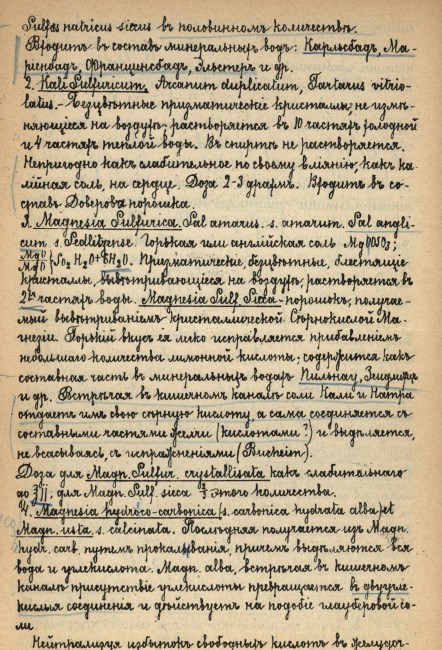 Sulfas natricus siccus въ половинномъ количествѣ.
Входитъ въ составъ минеральныхъ водъ: Карлсбадъ, Ма-
риенбадъ, Францинсбадъ, Эльстеръ и др.
2. Kali Sulfuricum. Arcanum duplicatum, Tartarus vitrio-
latus. - Безцвѣтные призматическіе кристаллы, не измѣ-
няющіеся на воздухѣ; растворяется въ 10 частяхъ холодной
и 4 частяхъ теплой воды. Въ спиртѣ не растворяется.
Непригодно какъ слабительное по своему вліянію, какъ ка-
лійная соль, на сердце. Доза 2-3 драхм. Входитъ въ со-
ставъ Доверова порошка.
3. Magnesia Sulfurica. Sal amarus. s. amarum. Sal angli-
cum s. Sedlitzense. Горькая или англійская соль MgOSO3;
MgO
MgO SO2 H2O+6H2O. Призматическіе, безцвѣтные, блестящіе
кристаллы, вывѣтривающіеся на воздухѣ, растворяется въ
2хъ частяхъ воды. Magnesia Sulf. Sicca - порошокъ, получае-
мый вывѣтриваніемъ кристаллической Сѣрнокислой Ма-
гнезіи. Горькій вкусъ ея легко исправляется прибавленіемъ
небольшаго количества лимонной кислоты; содержится какъ
составная часть въ минеральныхъ водахъ Пильнау, Зейдлицъ
и др. Встрѣчая въ кишечномъ каналѣ соли Кали и Натра
отдаетъ имъ свою сѣрную кислоту, а сама соединяется съ
составными частями желчи (кислотами?) и выдѣляется,
не всасываясь, съ испражненіями (Bucheim).
Доза для Magn. Sulfur. crystallisata какъ слабительнаго
до ℥ij; для Magn. Sulf. sicca 2/3 этого количества.
4. Magnesia hydrico-carbonica (s. carbonica hydrata alba) et
Magn. usta s. calcinata. Послѣдняя получается изъ Magn.
hydr. carb. путемъ прокаливанія, причемъ выдѣляются вся
вода и углекислота. Magn. alba, встрѣчая въ кишечномъ
каналѣ присутствіе углекислоты превращается въ двуугле-
кислыя соединенія и дѣйствуетъ на подобіе глауберовой со-
ли.
Нейтрализуя избытокъ свободныхъ кислотъ въ желудоч-